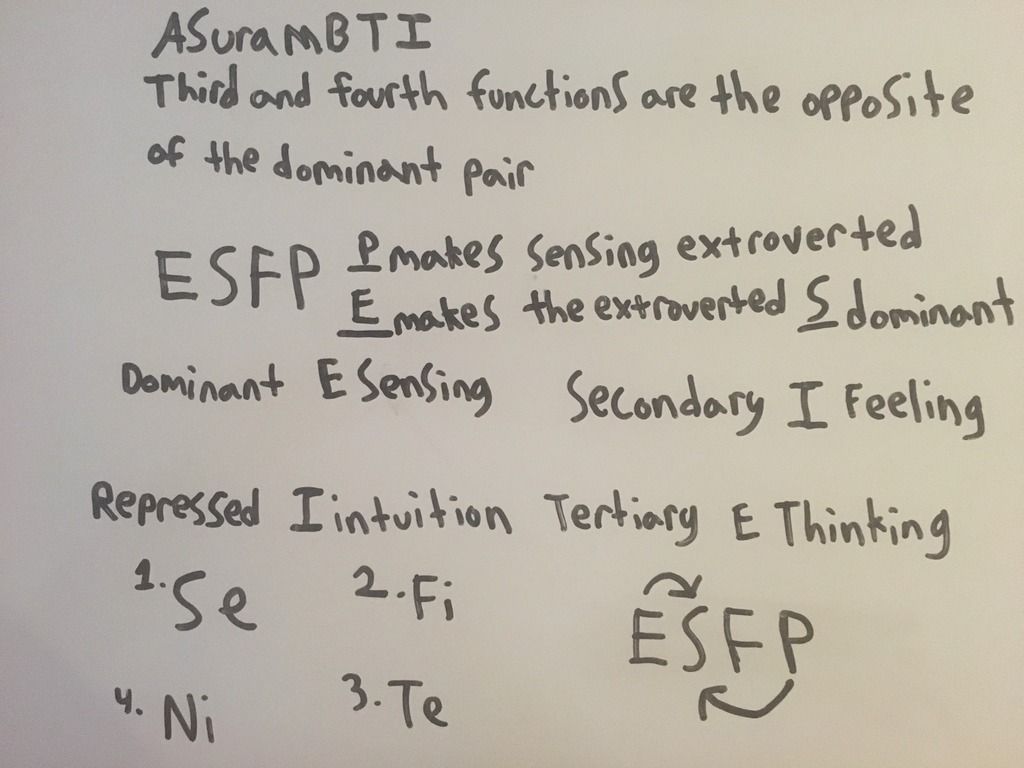 ASuraMBTI
Third and fourth functions are the opposite
of the dominant pair
ESFP P makes sensing extroverted
E makes the extroverted S dominant
Dominant E Sensing Secondary I Feeling
Repressed I intuition Tertiary E Thinking
1. Se 2. Fi
ESFP
4. Ni 3. Te